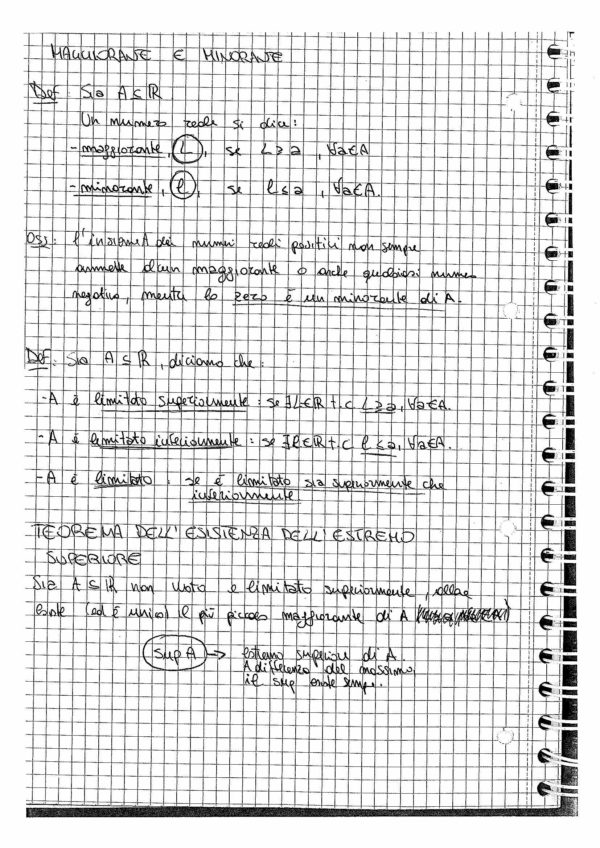 MAGGIORANTE E MINORANTE
Def: Sia A ⊆ ℝ
Un numero reale si dice:
- maggiorante, L, se L ≥ a, ∀a∈A
- minorante, l, se l ≤ a, ∀a∈A.
Oss: l'insieme A dei numeri reali positivi non sempre
ammette d'un maggiorante o anche qualsiasi numero
negativo, mentre lo zero è un minorante di A.
Def: Sia A ⊆ ℝ, diciamo che:
- A è limitato superiormente: se ∃L∈ℝ t.c L ≥ a, ∀a∈A.
- A è limitato inferiormente: se ∃l∈ℝ t.c l ≤ a, ∀a∈A.
- A è limitato: se è limitato sia superiormente che
inferiormente
TEOREMA DELL'ESISTENZA DELL'ESTREMO
SUPERIORE
Sia A ⊆ ℝ non vuoto e limitato superiormente, allora
esiste (ed è unico) il più piccolo maggiorante di A
sup A → estremo superiore di A.
A differenza del massimo,
il sup esiste sempre.